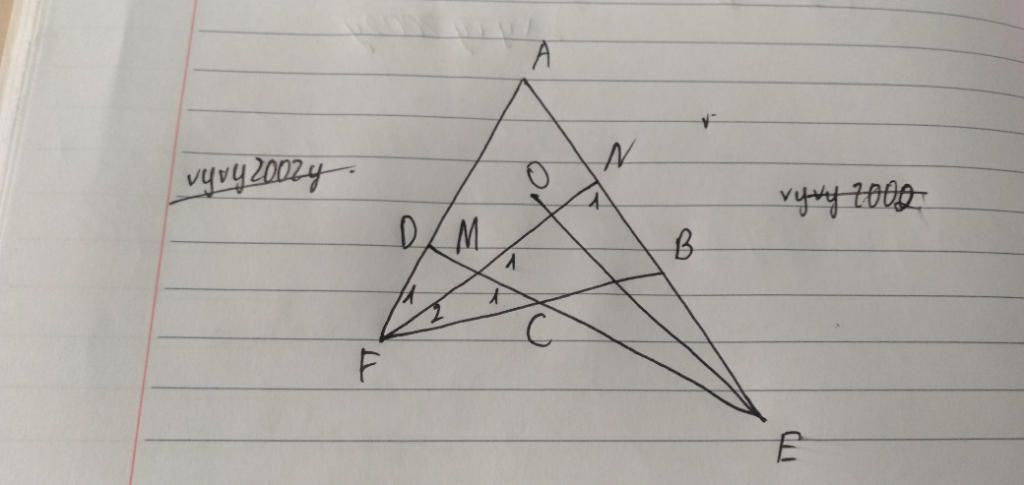 A
N
O
vyvy2002y
1
vyvy 2002
D M
B
1
1
1
2
C
F
E